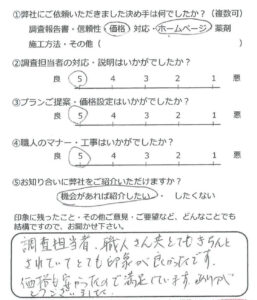 ①弊社にご依頼いただきました決め手は何でしたか？（複数可）
調査報告書・信頼性・価格・対応・ホームページ・薬剤
施工方法・その他（　　　　　　　　　　　　　）
②調査担当者の対応・説明はいかがでしたか？
良　5　4　3　2　1　悪
③プランご提案・価格設定はいかがでしたか？
良　5　4　3　2　1　悪
④職人のマナー・工事はいかがでしたか？
良　5　4　3　2　1　悪
⑤お知り合いに弊社をご紹介いただけますか？
機会があれば紹介したい・　・したくない
印象に残ったこと・その他ご意見・ご要望など、どんなことでも
結構ですので、お聞かせ下さい。
調査担当者、職人さん共とてもきちんと
されていてとても印象が良かったです。
価格も安かったので満足しています。ありがとうございました。